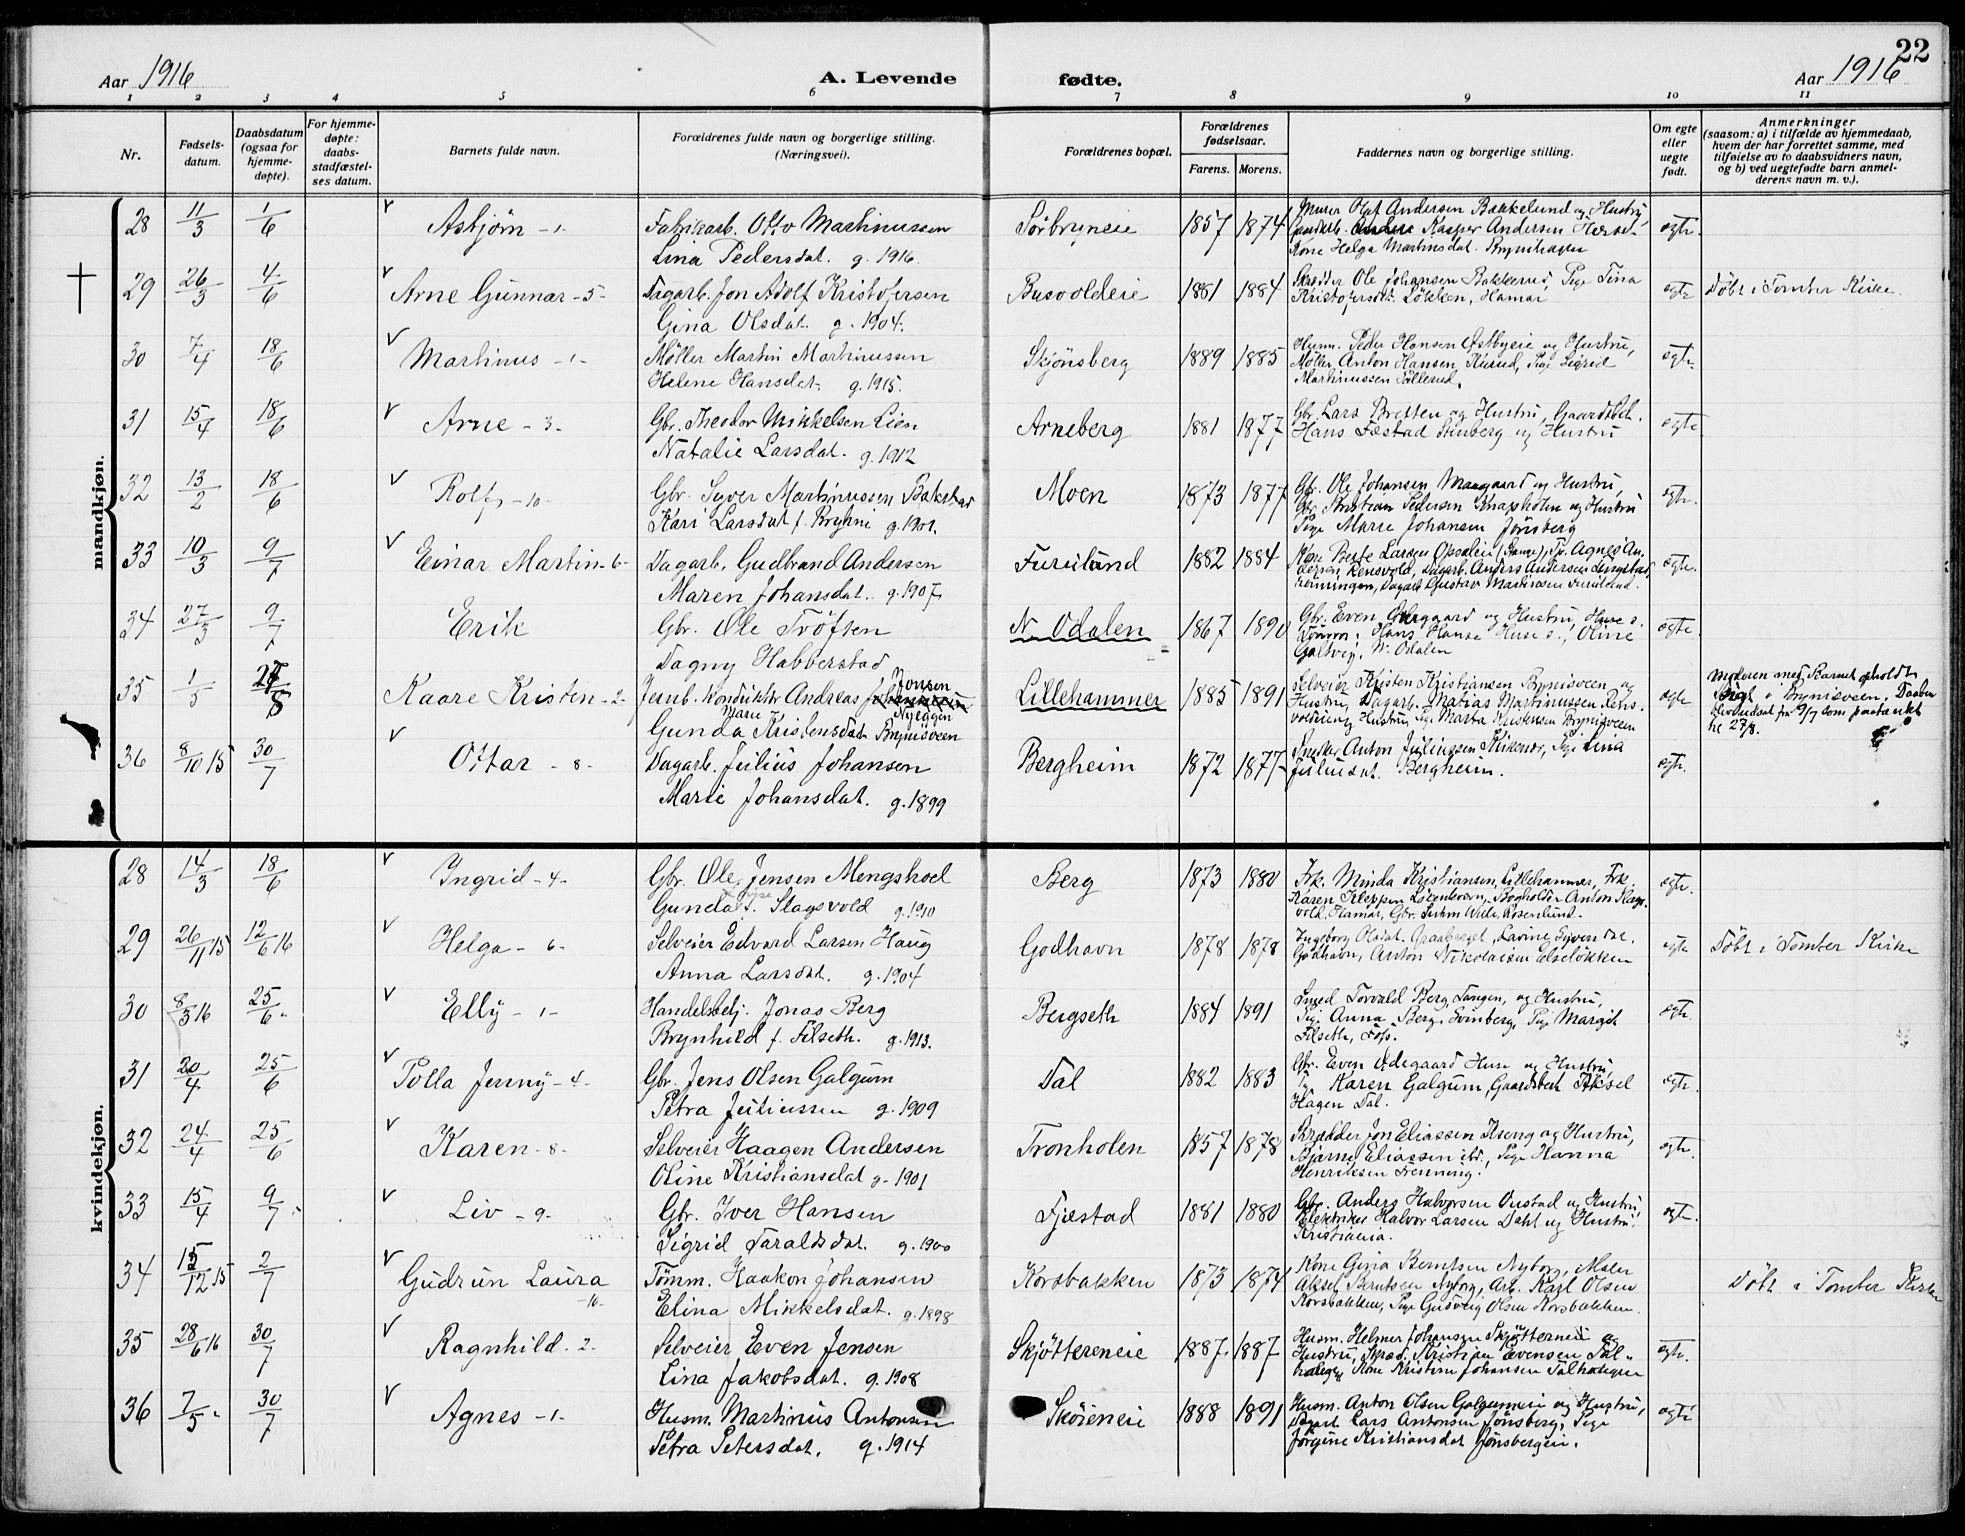 22
Aar 1916
A. Levende fødte.
Aar 1916
1 2 3 4 5 6 7 8 9 10 11
Nr.
Fødsels-
datum.
Daabsdatum
(ogsaa for
hjemme-
døpte).
For hjemme-
døpte:
daabs-
stadfæstel-
ses datum.
Barnets fulde navn.
Forældrenes fulde navn og borgerlige stilling.
(Næringsvei).
Forældrenes bopæl.
Forældrenes
fødselsaar.
Farens. Morens.
Faddernes navn og borgerlige stilling.
Om egte
eller
uegte
født.
Anmerkninger
(saasom: a) i tilfælde av hjemmedaab,
hvem der har forrettet samme, med
tilføielse av to daabsvidners navn,
og b) ved uegtefødte barn anmel-
derens navn m. v.).
mandkjøn.
28 11/3 1/6 Asbjørn -1- Fabrikarb. Otto Martinussen Sörbryneie 1857 1874 Murer Olaf Andersen Bækkelund og Hustru, egte.
Lina Pedersdat. g. 1916. Kasper Andersen
Kone Helga Martinsdat. Brynihagen
29 26/3 4/6 Arne Gunnar -5- Dagarb. Jon Adolf Kristofersen Busvoldeie 1881 1884 Skrædder Ole Johansen Bakkerud, Pige Tina egte Döbt i Tomter Kirke.
Gina Olsdat. g. 1904. Kristofersdt. Løkken, Hamar
30 7/4 18/6 Martinus -1- Møller Martin Martinussen Skjønsberg 1889 1885 Husm. Peder Hansen Østbyeie og Hustru, egte.
Helene Hansdat. g. 1915. Møller Anton Hansen, Pige Sigrid
Martinussen Tøllerud.
31 15/4 18/6 Arne -3- Gbr. Theodor Mikkelsen Lien Arneberg 1881 1877 Gbr. Lars Bretten og Hustru, Gaardsbst. egte
Natalie Larsdat. g. 1912 Hans Fæstad Stenberg og Hustru
32 13/2 18/6 Rolf -10- Gbr. Syver Martinussen Bakstad Moen 1873 1877 Gbr. Ole Johansen Maagaard og Hustru, egte.
Kari Larsdat f. Bryhni g. 1901. Gbr. Kristian Pedersen Knapholen og Hustru
Pige Marie Johansen Jönsberg
33 10/3 9/7 Einar Martin -6- Dagarb. Gudbrand Andersen Furulund 1882 1884 Kone Berte Larsen Opsaleie egte.
Maren Johansdat. g. 1907 Rensvold, Dagarb. Anders Andersen
Dagarb Gustav Martinsen Furulund.
34 27/3 9/7 Erik Gbr. Ole Tröften N. Odalen 1867 1890 Gbr. Even Ødegaard og Hustru, Huse s. egte
Dagny Habberstad Hans Hanse Huse s., Oline
Galtvig, N. Odalen
35 1/5 27/8 Kaare Kristen -2- Jernb. Konduktør Andreas Jonsen Nyeggen Lillehammer 1885 1891 Selveier Kristen Kristiansen Brynisveen og egte Moderen med Barnet opholdt
Gunda Marie Kristensdat Brynisveen Hustru, Dagarb. Matias Martinussen Rens-
voldeie og Hustru, Pige Marta Kristensen Brynisveen
36 8/10 15 30/7 Ottar -8- Dagarb. Julius Johansen Bergheim 1872 1877 Snedker Anton Juliussen Kirkener, Pige Lina egte.
Marie Johansdat. g. 1899 Juliusdt. Bergheim.
kvindekjøn.
28 14/3 18/6 Ingrid -4- Gbr. Ole Jensen Mengshoel Berg 1873 1880 Frk. Minda Kristiansen, Lillehammer, Frk. egte.
Gunda f. Slagsvold g. 1910 Karen Kleppen Bogholder Anton Slags-
vold, Hamar, Gbr. Rosenlund.
29 26/11 15 12/6 16 Helga -6- Selveier Edvard Larsen Haug Godhavn 1878 1878 Ingeborg Olsdat. Graaberget, Lavine Syversdat. egte Döbt i Tomter Kirke
Anna Larsdat. g. 1904 Godhavn, Anton Nikolaisen Elseløkken
30 8/3 16 25/6. Elly -1- Handelsbetj. Jonas Berg Bergseth 1884 1891 Smed Torvald Berg, Tangen, og Hustru, egte.
Brynhild f. Filseth. g. 1913. Pige Anna Berg, Svinberg, Pige Margit
Filseth,
31 20/4 25/6 Polla Jenny -4- Gbr. Jens Olsen Galgum Dal 1882 1883 Gbr. Even Ødegaard Huse og Hustru, egte.
Petra Juliussen g. 1909 Karen Galgum, Gaardsbest Aksel
Hagen Dal.
32 24/4 25/6 Karen -8- Selveier Haagen Andersen Tronholen 1857 1878 Skrædder Jon Eliassen Ilseng og Hustru, egte.
Oline Kristiansdat g. 1901 Bjarne Eliassen ibd., Pige Hanna
Henriksen Frenning.
33 15/4 9/7. Liv -9- Gbr. Iver Hansen Fjæstad 1881 1880 Gbr. Anders Halvorsen Onstad og Hustru, egte.
Sigrid Taraldsdat. g. 1900 Elektriker Halvor Larsen Dahl og Hustru,
Kristiania.
34 15/12 15 2/7 Gudrun Laura -10- Tömm. Haakon Johansen Korsbakken 1873 1874 Kone Gina Berntsen Nyborg, Maler Döbt i Tomter Kirke
Elina Mikkelsdat. g. 1898 Aksel Berntsen Nyborg, Arb. Karl Olsen
Korsbakken, Pige Gudveig Olsen Korsbakken.
35 28/6 16 30/7 Ragnhild -2- Selveier Even Jensen Skjøttereneie 1887. 1887 Husm. Helmer Johansen Skjøttereneie og egte.
Lina Jakobsdat. g. 1908 Hustru, Skræd. Kristian Evensen Tal-
Kone Kristine Johansen
36 7/5. 30/7 Agnes -1- Husm. Martinus Antonsen Skøieneie 1888 1891 Husm. Anton Olsen Galgumeie og Hustru, egte
Petra Petersdat. g. 1914 Lars Antonsen Jönsberg, Pige
Jørgine Kristiansdat Jönsbergeie.